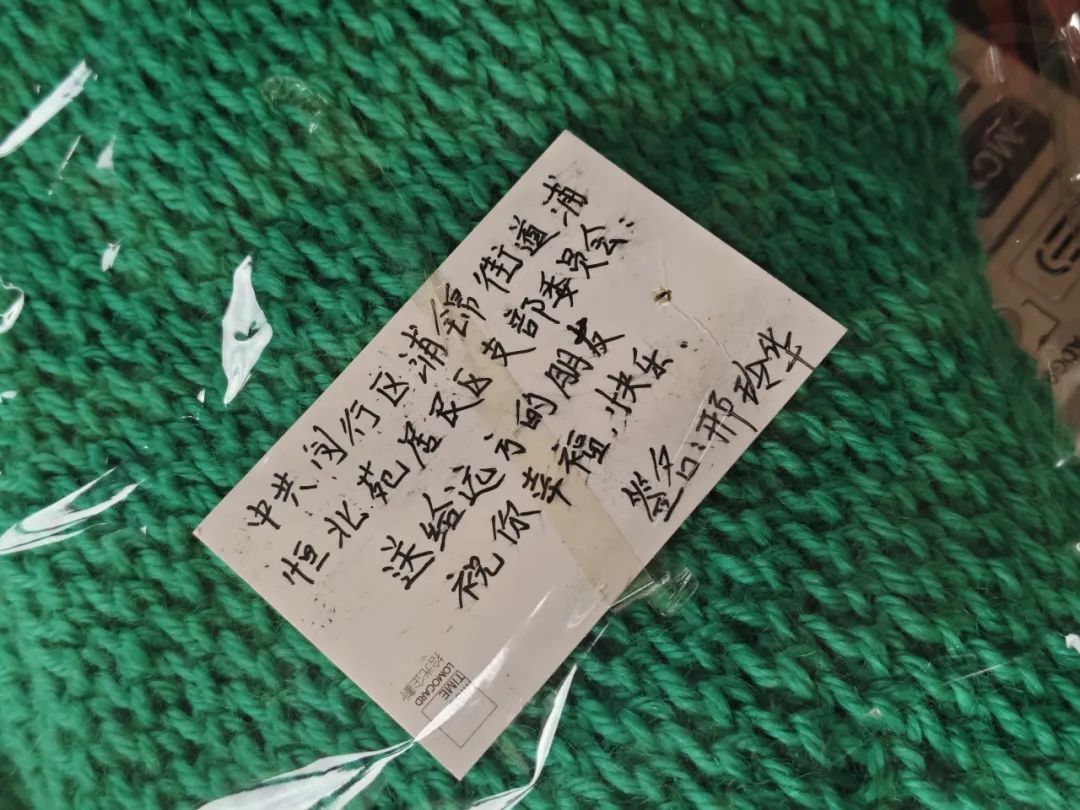 中共闵行区浦锦街道浦
恒北苑居民区支部委员会:
送给远方的朋友
祝你幸福,快乐
签名:邢珍华
TIME
LOMOCARD
拾光企劃
MC